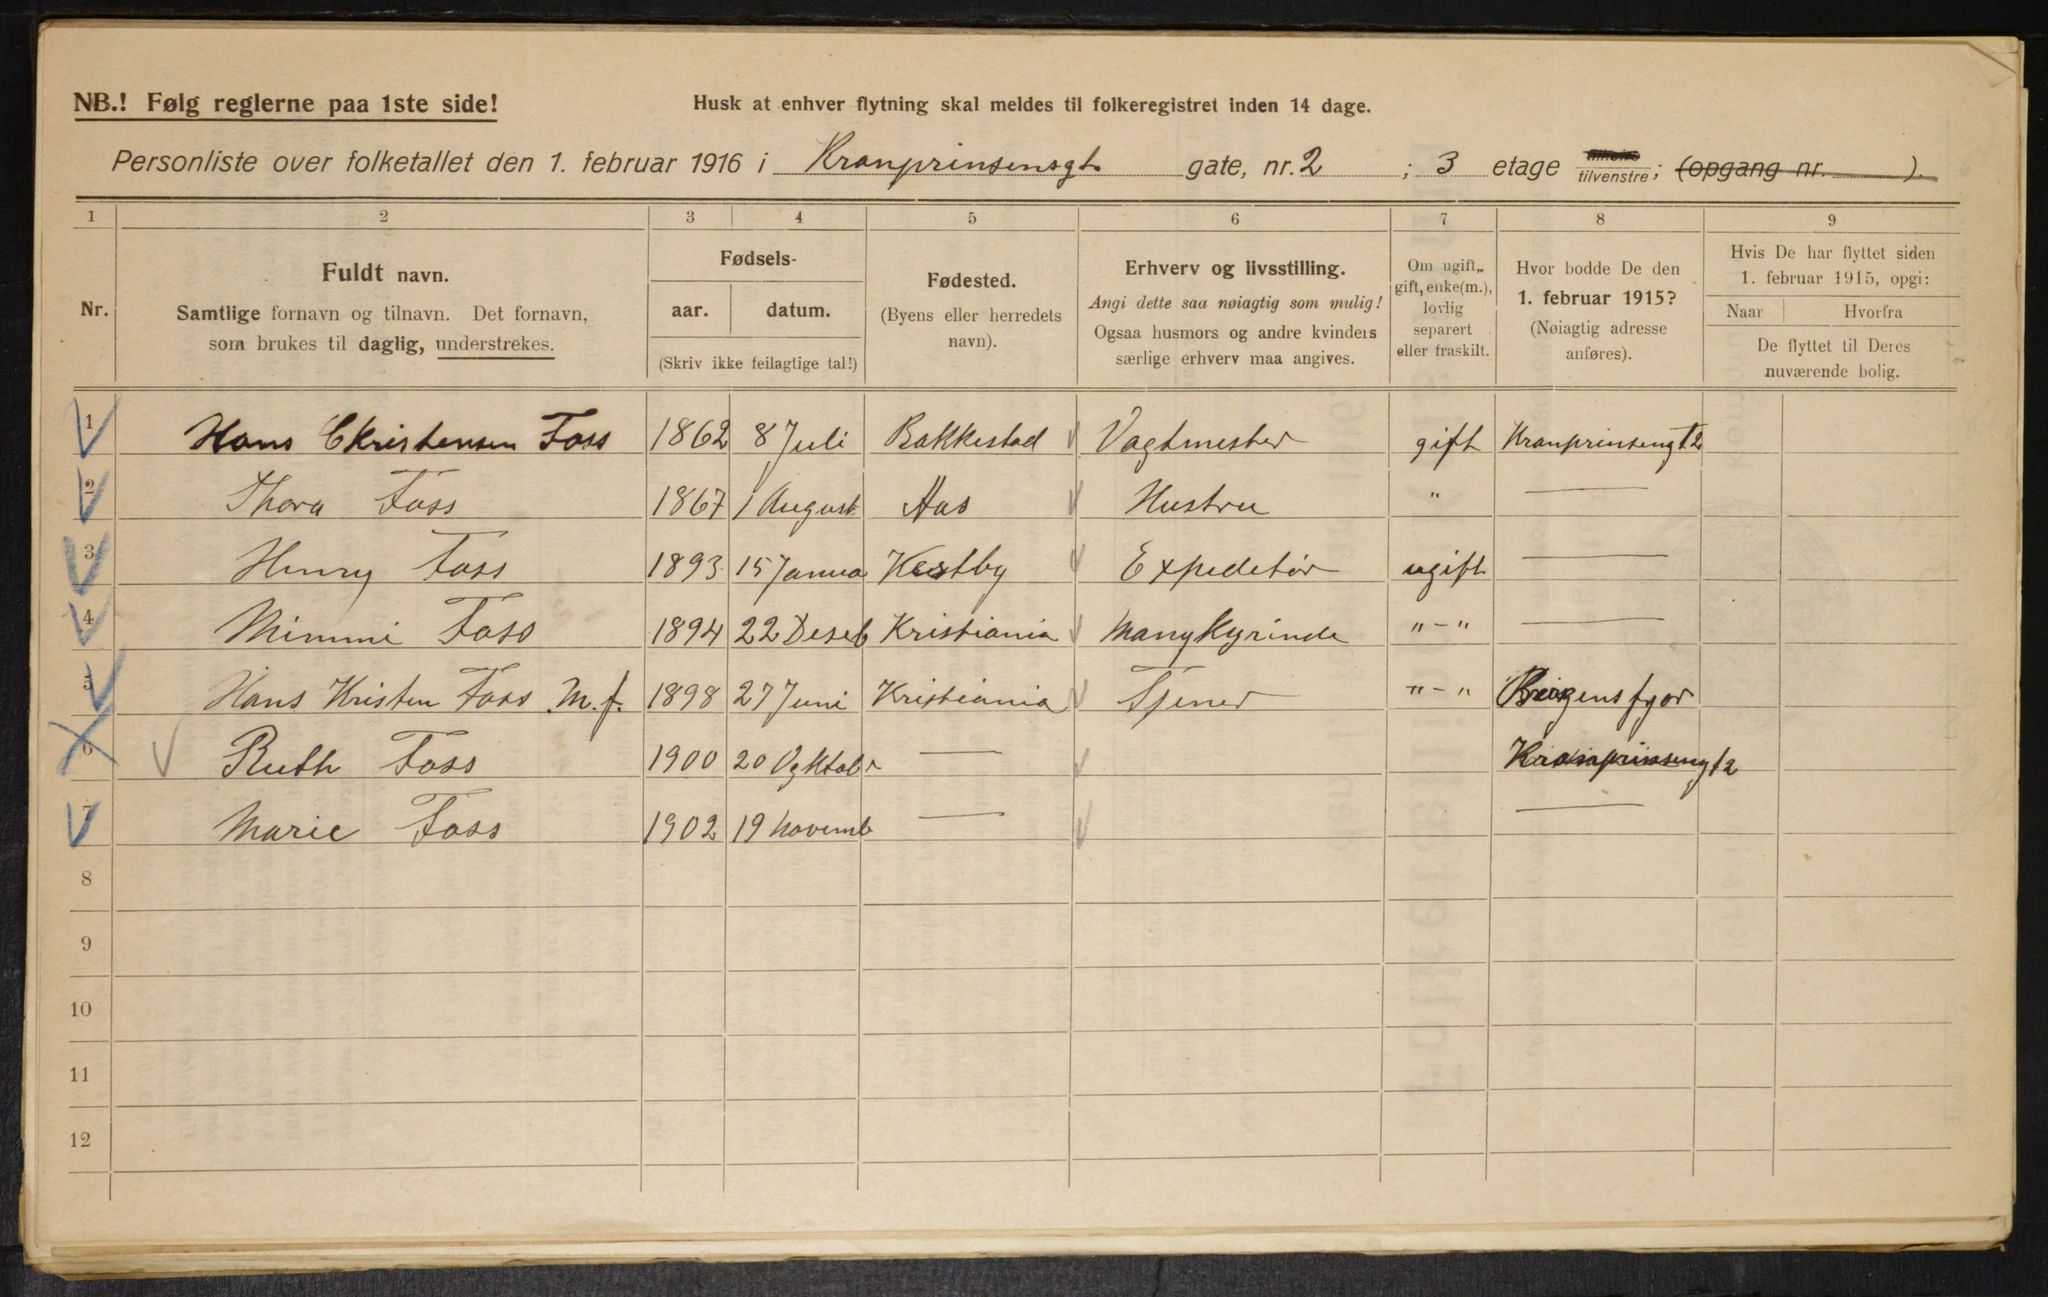 NB.! Følg reglerne paa 1ste side!
Husk at enhver flytning skal meldes til folkeregistret inden 14 dage.
Personliste over folketallet den 1. februar 1916 i Kronprinsensgt. gate, nr. 2 ; 3 etage tilhøire tilvenstre; (opgang nr. ).
1 2 3 4 5 6 7 8 9
Nr.
Fuldt navn.
Samtlige fornavn og tilnavn. Det fornavn,
som brukes til daglig, understrekes.
Fødsels-
aar. datum.
(Skriv ikke feilagtige tal!)
Fødested.
(Byens eller herredets
navn).
Erhverv og livsstilling.
Angi dette saa nøiagtig som mulig!
Ogsaa husmors og andre kvinders
særlige erhverv maa angives.
Om ugift,
gift, enke(m.),
lovlig
separert
eller fraskilt.
Hvor bodde De den
1. februar 1915?
(Nøiagtig adresse
anføres).
Hvis De har flyttet siden
1. februar 1915, opgi:
Naar Hvorfra
De flyttet til Deres
nuværende bolig.
1 Hans Christensen Foss 1862 8 Juli Bakkestad Vagtmester gift Kronprinsengt 2
2 Thora Foss 1867 1 August Aas Hustru " —
3 Henry Foss 1893 15 Janua Vestby Expeditør ugift —
4 Mimmi Foss 1894 22 Deseb Kristiania "-" —
5 Hans Kristen Foss M.f. 1898 27 Juni Kristiania Tjener "-" Bergensfjor
6 Ruth Foss 1900 20 Ogktobr — Kronprinsengt 2
7 Marie Foss 1902 19 Novemb — —
8
9
10
11
12